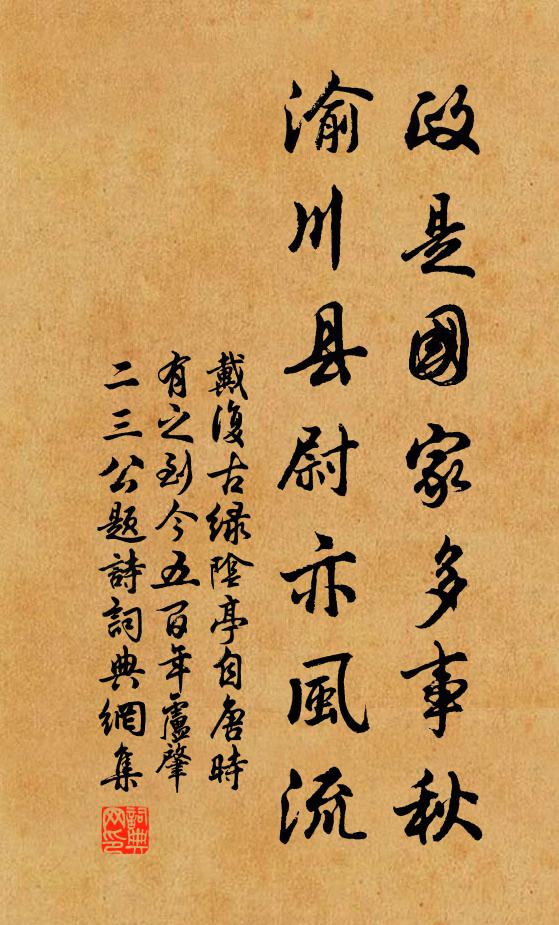 政是國家多事秋
渝川县尉亦風流
戴復古绿陰亭自唐時
有之到今五百年盧肇
二三公題詩詞典網集
詞典网印